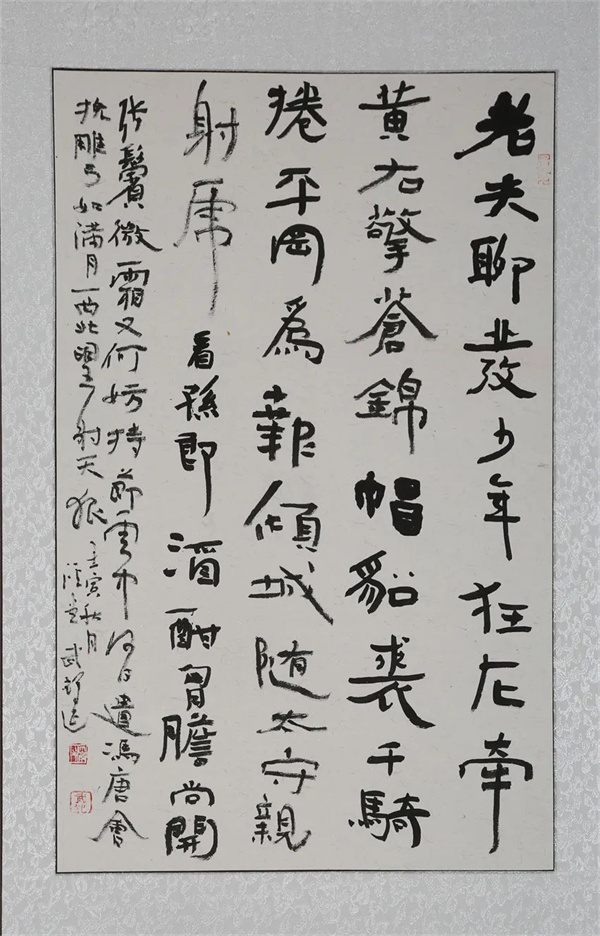 老夫聊發少年狂左牽
黄右擎蒼錦帽貂裘千騎
捲平岡爲報傾城随太守親
射虎看孫郎酒酣胷膽尚開
張鬢微霜又何妨持節雲中何日遣馮唐會
挽雕弓如满月西北望射天狼壬寅秋月
武